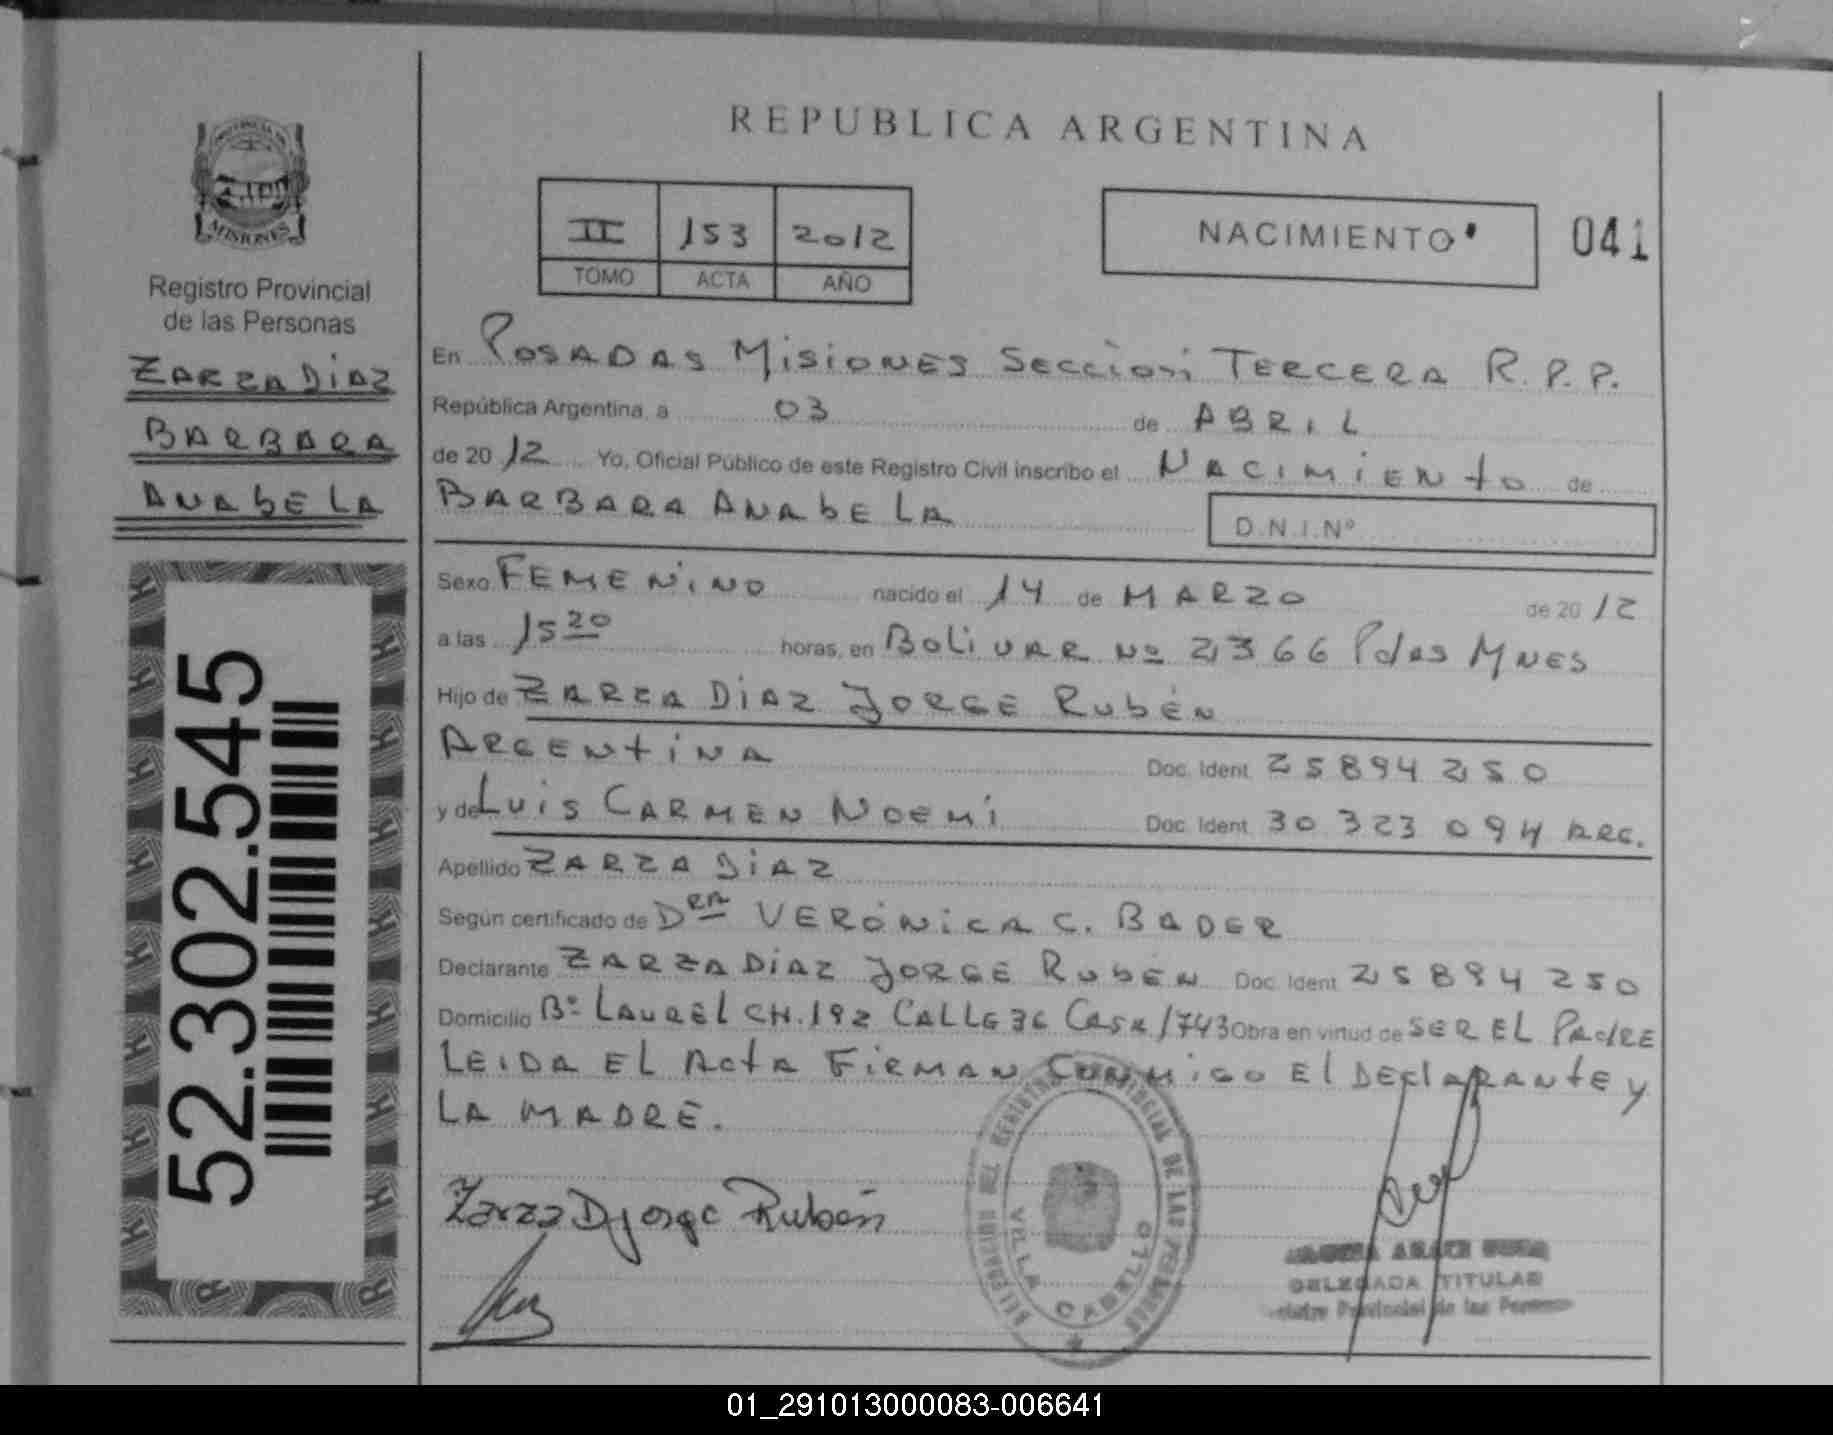 REPUBLICA ARGENTINA
MISIONES
Registro Provincial
de las Personas
ZARZA DiAZ
BARBARA
ANAbELA
52.302.545
II 153 2012
TOMO ACTA AÑO
NACIMIENTO
041
En POSADAS MISIONES SECCION TERCERA R.P.P.
República Argentina, a 03 de ABRIL
de 2012 Yo, Oficial Público de este Registro Civil inscribo el NACIMIENtO de
BARBARA ANAbELA D.N.I.Nº
Sexo FEMENINO nacido el 14 de MARZO de 2012
a las 15 20 horas, en BOLIVAR Nº 2366 Pdas MNES
Hijo de ZARZA DiAZ JORGE RubÉN
ARGENtINA Doc. Ident. 25894250
y de LUIS CARMEN NOEMI Doc. Ident. 30323094 ARG.
Apellido ZARZA DiAZ
Según certificado de DRA VERÓNICA C. BADER
Declarante ZARZA DIAZ JORGE RubÉN Doc. Ident. 25894250
Domicilio Bº LAUREL CH.192 CALLE 36 CASA 1743 Obra en virtud de SER EL PAdRE
LEIDA EL ActA FIRMAN CONMIGO El DEClARANtE y
LA MADRE.
Zarza D Jorge Rubén
DELEGACION DEL REGISTRO PROVINCIAL DE LAS PERSONAS
VILLA CABELLO
DELEGADA TITULAR
Registro Provincial de las Personas
01_291013000083-006641